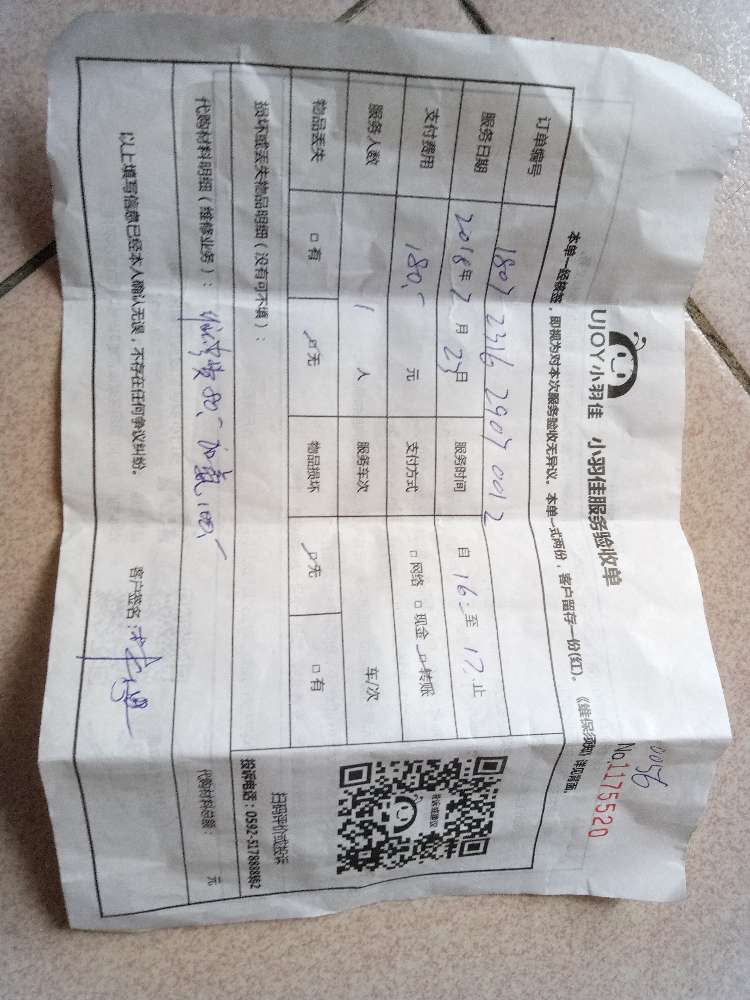 0056
No1175520
UJOY小羽佳 小羽佳服务验收单
本单一经核签，即视为对本次服务验收无异议。本单一式两份，客户留存一份(红)。《维保须知》详见背面。
订单编号 1807 2316 2907 0012
服务日期 2018年7月23日 服务时间 自 16: 至 17: 止
支付费用 180.- 元 支付方式 □网络 □现金 □转账
服务人数 1 人 服务车次 车/次
物品丢失 □有 □无 物品损坏 □无 □有
损坏或丢失物品明细（没有可不填）：
扫码评价或投诉
投诉电话：0592-517888转2
代购材料明细（维修业务）： 80.- 加氟100.- 代购材料总额： 元
以上填写信息已经本人确认无误，不存在任何争议纠纷。 客户签名：